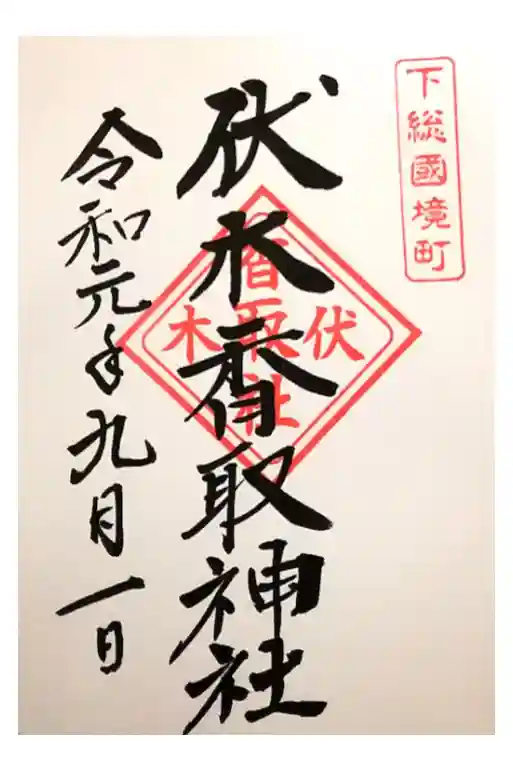 下総國境町
伏木香取神社
香取社
伏木
令和元年九月一日